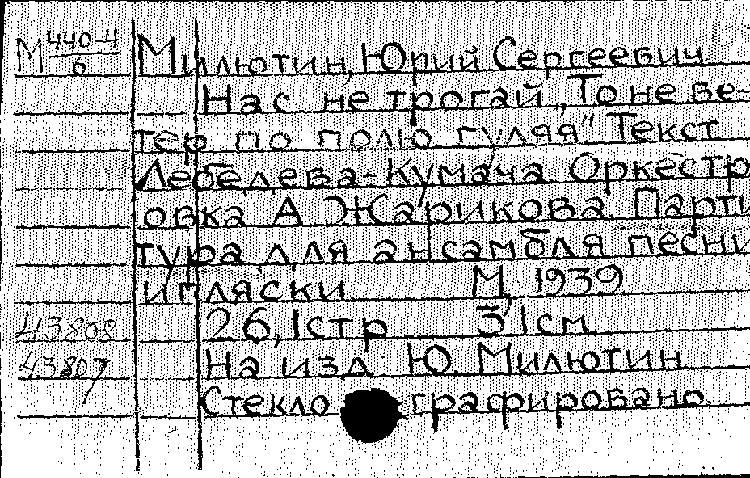 М 440-4/6 Милютин, Юрий Сергеевич
Нас не трогай „То не ве-
тер по полю гуляя" Текст
Лебедева-Кумача Оркестр
овка А Жарикова Парти
тура для ансамбля песни
и пляски М, 1939
43808 26, 1 стр 31 см
43807 На изд Ю Милютин
Стекло графировано